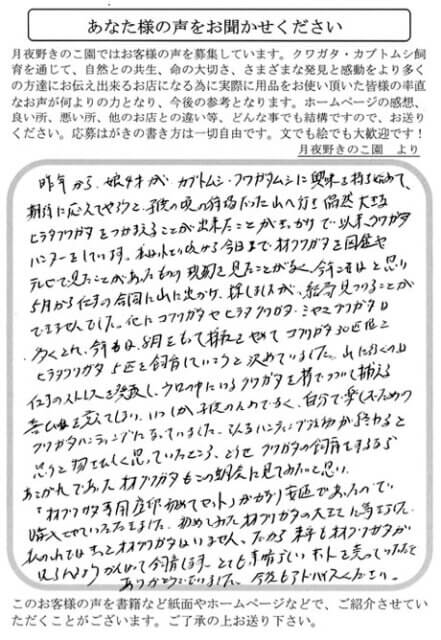 あなた様の声をお聞かせください
月夜野きのこ園ではお客様の声を募集しています。クワガタ・カブトムシ飼
育を通じて、自然との共生、命の大切さ、さまざまな発見と感動をより多く
の方達にお伝え出来るお店になる為に実際に用品をお使い頂いた皆様の率直
なお声が何よりの力となり、今後の参考となります。ホームページの感想、
良い所、悪い所、他のお店との違い等、どんな事でも結構ですので、お送り
ください。応募はがきの書き方は一切自由です。文でも絵でも大歓迎です！
月夜野きのこ園 より
昨年から、娘が カブトムシ・クワガタムシに興味を持ち始めて、
期待に応えてやろうと、子供の頃の 山へ行き 偶然 大型
ヒラタクワガタをつかまえることが出来たことがきっかけで 以来クワガタ
ハンターをしています。私は 頃から今日まで オオクワガタを図鑑や
テレビで見たことがあったものの 現物を見たことがなく、今年こそはと思い
5月から仕事の合間に山に出かけ、探しましたが、結局見つけることが
できませんでした。他にコクワガタやヒラタクワガタ・ミヤマクワガタは
多くとれ、今年は、8月をもって採取をやめて コクワガタ30匹位と
ヒラタクワガタ5匹を飼育していこうと決めていました。山に行くのは
仕事のストレスを発散し、ウロの中にいるクワガタを棒でつついて捕える
喜びを覚えてしまい、いつしか子供のためでなく、自分で楽しむための
クワガタハンティングになっていました。 ハンティング が終わると
思うと物さびしく思っていたところ、どうせ クワガタの飼育をするなら
あこがれであった オオクワガタもこの機会に見てみたいと思い
「オオクワガタ専用 初めてセット」がかなり安価であったので
購入させていただきました。初めてみたオオクワガタの大きさに
私の山ではきっとオオクワガタはいません。だから 来年もオオクワガタが
見られるよう がんばって飼育します。とても素晴らしい セットを売っていただいて
ありがとうございました。今後もアドバイスください。
このお客様の声を書籍など紙面やホームページなどで、ご紹介させてい
ただくことがございます。ご了承の上お送り下さい。